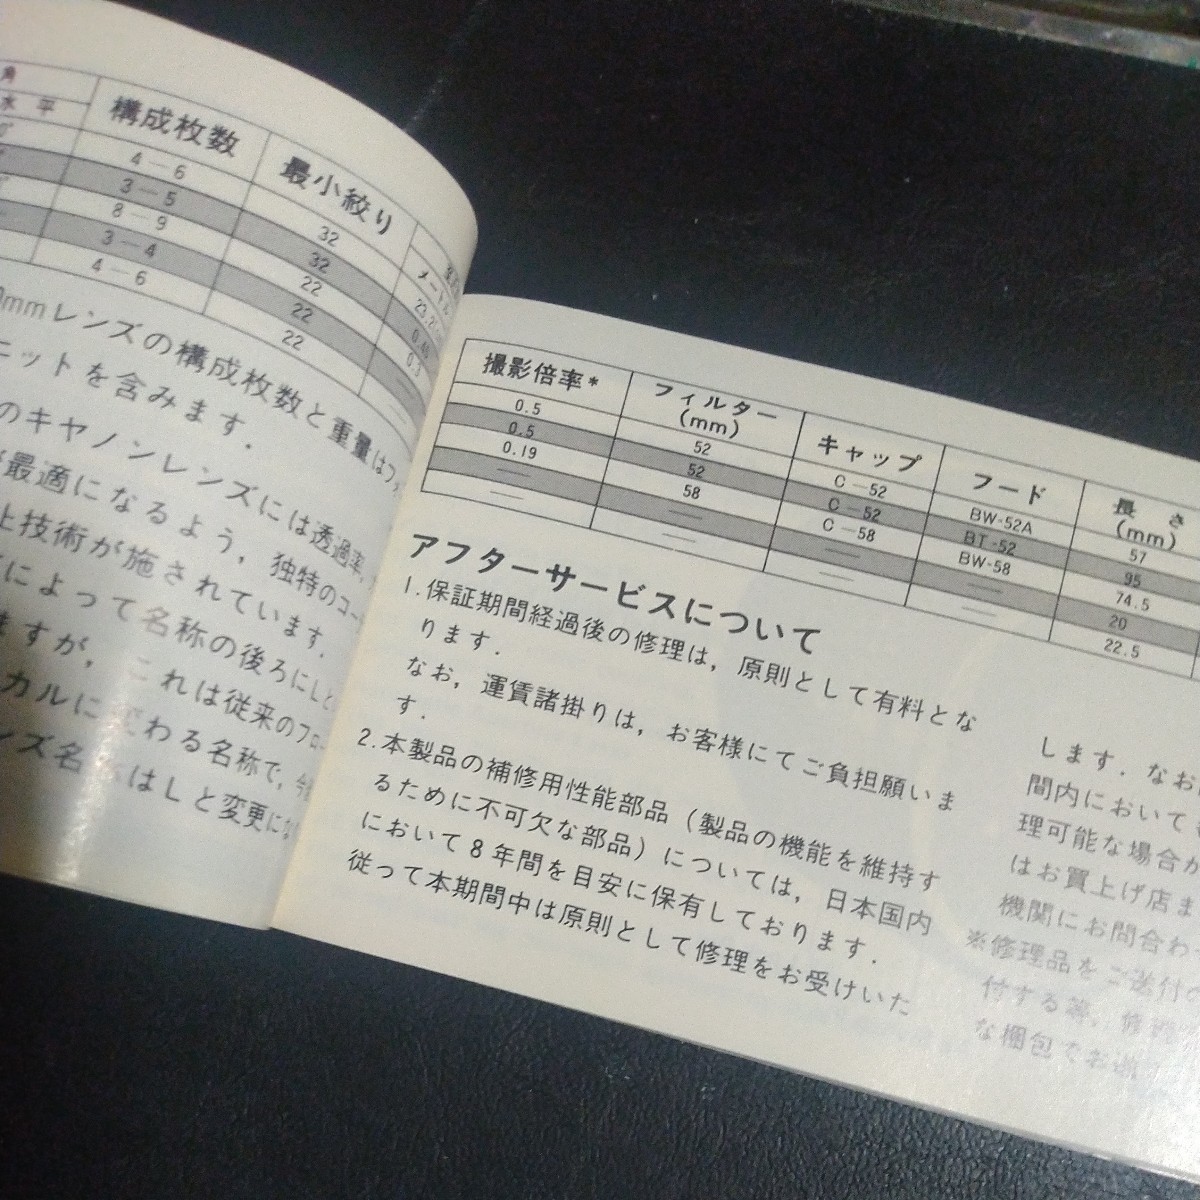 角
水平 構成枚数 最小絞り
4－6 32
3－5 32
8－9 22
3－4 22
4－6 22
メートル
23.2cm
0.40
0.3
mmレンズの構成枚数と重量はフ
ニットを含みます．
のキヤノンレンズには透過率，
最適になるよう，独特のコー
上技術が施されています．
によって名称の後ろにLと
ますが，これは従来のフロー
カルに変わる名称で，今
ンズ名称はLと変更にな
撮影倍率* フィルター(mm) キャップ フード 長さ(mm)
0.5 52 C－52 BW-52A 57
0.5 52 C－52 BT-52 95
0.19 58 C－58 BW-58 74.5
── ── ── ── 20
── ── ── ── 22.5
アフターサービスについて
1.保証期間経過後の修理は，原則として有料とな
ります．
なお，運賃諸掛りは，お客様にてご負担願いま
す．
2.本製品の補修用性能部品（製品の機能を維持す
るために不可欠な部品）については，日本国内
において8年間を目安に保有しております．
従って本期間中は原則として修理をお受けいた
します．なお
間内において
理可能な場合か
はお買上げ店ま
機関にお問合わ
※修理品をご送付の
付する等，修理
な梱包でお送